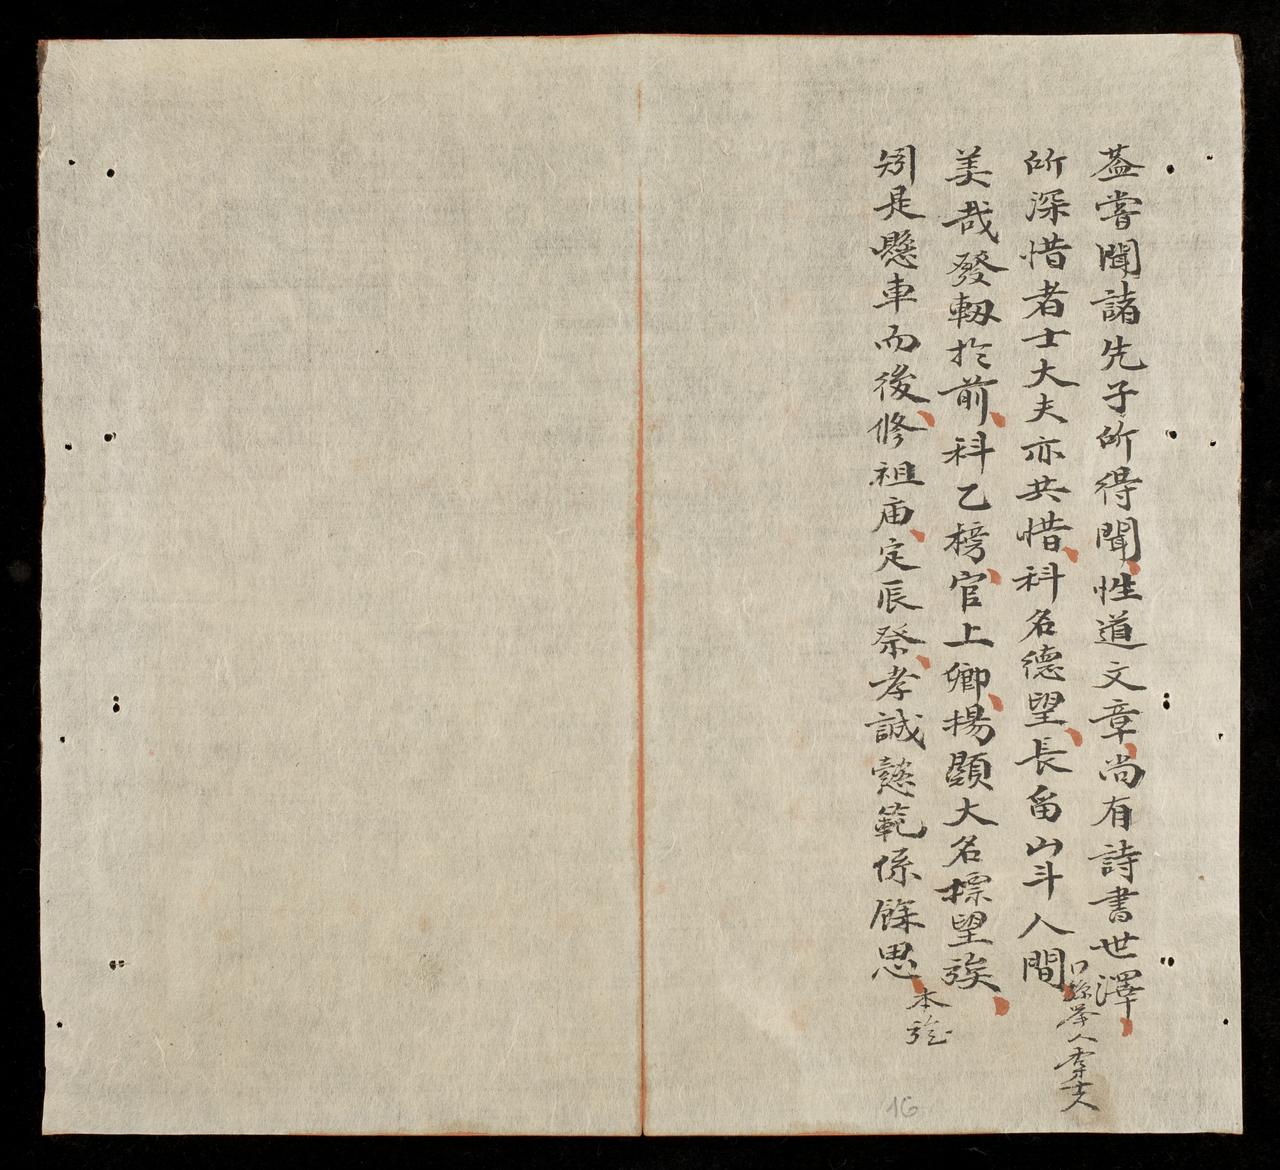 蓋嘗聞諸先子所得聞性道文章尚有詩書世澤
所深惜者士大夫亦共惜科名德望長留山斗人間
舉人
美哉發軔於前科乙榜官上卿揚顯大名標望族
矧是懸車而後修祖庙定辰祭孝誠懿範係餘思
本
16